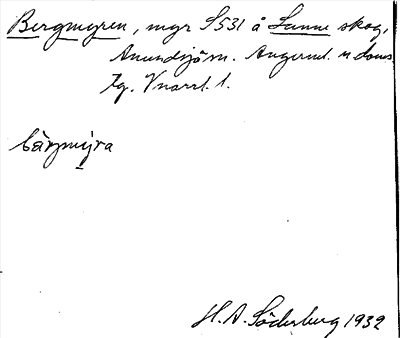 Bergmyren, myr S531 å Sunne skog,
Anundsjö sn. Ångerml. n. doms.
Tg. Vnorrl. l.
bärjmyra
H. A. Söderberg 1932